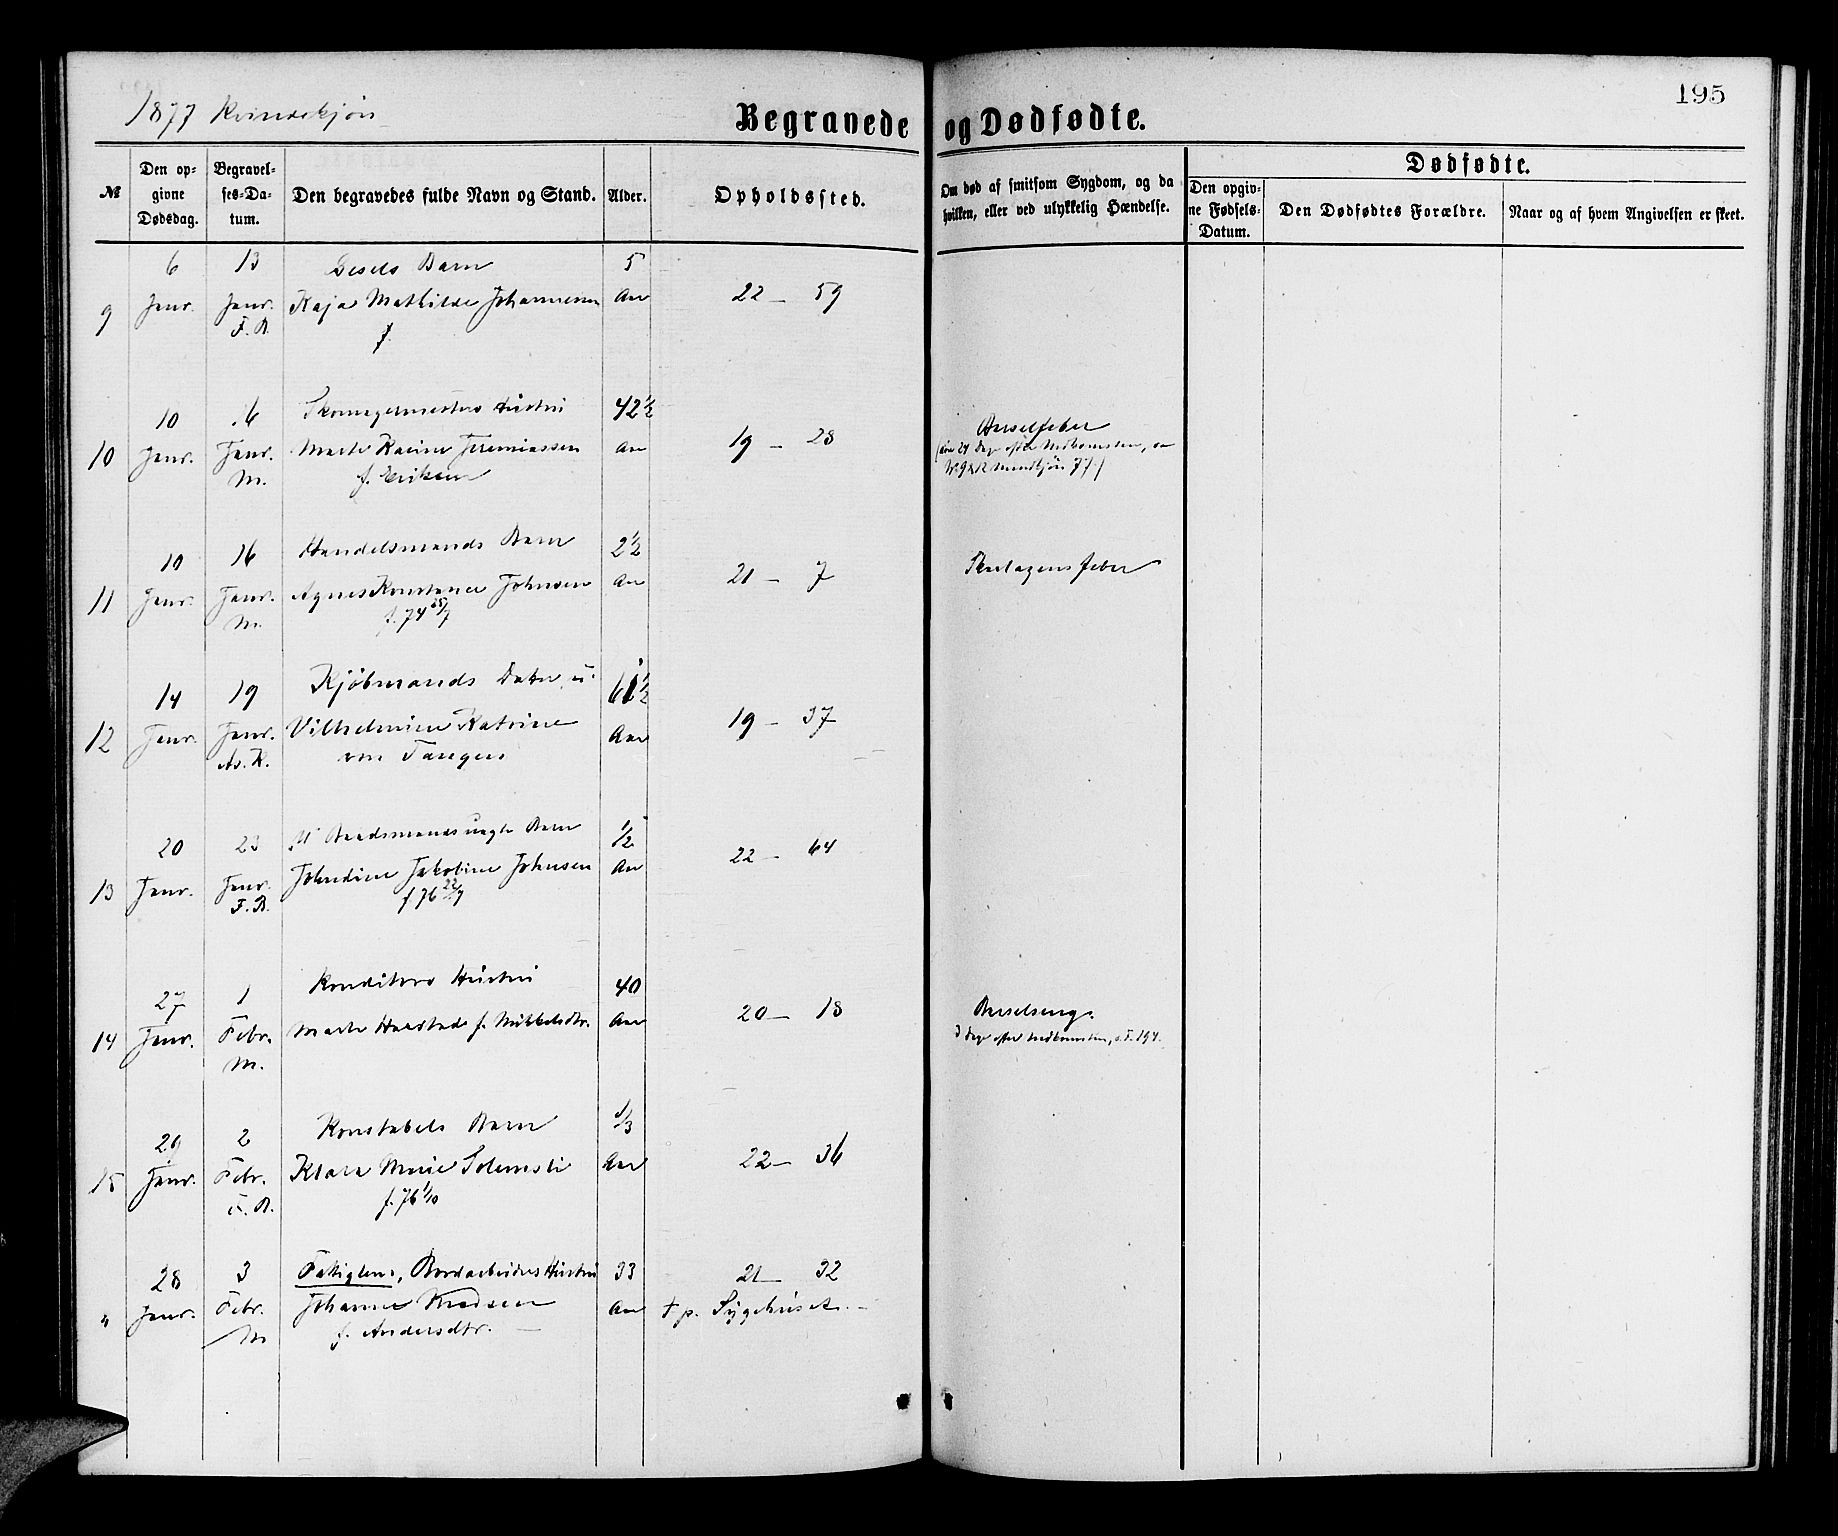 195
1877 Kvindekjøn
Begravede og Dødfødte.
№
Den opgivne Dødsdag.
Begravelses-Datum.
Den begravedes fulde Navn og Stand.
Alder.
Opholdssted.
Om død af smitsom Sygdom, og da hvilken, eller ved ulykkelig Hændelse.
Dødfødte.
Den opgivne Fødsels-Datum.
Den Dødfødtes Forældre.
Naar og af hvem Angivelsen er skeet.
6 13 Barn 5
9 Janr. Janr. Kaja Mathilde Johannesen Aar 22 - 59
F. B.
f.
10 16 Skomagermesters Hustru 42 1/2
10 Janr. Janr. Marte Karine Jeremiassen Aar 19 - 28 Barselfeber
M. f. Eriksen
24 Dage efter Nedkomsten,
10 16 Handelsmands Barn 2 1/2
11 Janr. Janr. Agnes Konstance Johnsen Aar 21 - 7 Skarlagensfeber
M. f. 74 25/7
14 19 Kjøbmands Datter u. 61 1/2
12 Janr. Janr. Vilhelmine Katrine Aar 19 - 37
As. K. von Tangen
20 23 Baadsmands Barn 1/2
13 Janr. Janr. Johndine Jakobine Johnsen Aar 22 - 64
F. B. f 76 22/7
27 1 Konditors Hustru 40
14 Janr. Febr. Marte Haastad f. Mikkelsdtr. Aar 20 - 18 Barselseng.
M. 3 Dage efter Nedkomsten, s. F. 194.
29 2 Konstabels Barn 1/3
15 Janr. Febr. Klara Marie Solemsli Aar 22 - 36
F. B. f. 76 1/10
28 3 Fattiglem, Bordarbeiders Hustru 33 21 - 32
" Janr. Febr. Johanne Knudsen Aar † p. Sygehuset.
M f. Andersdtr.